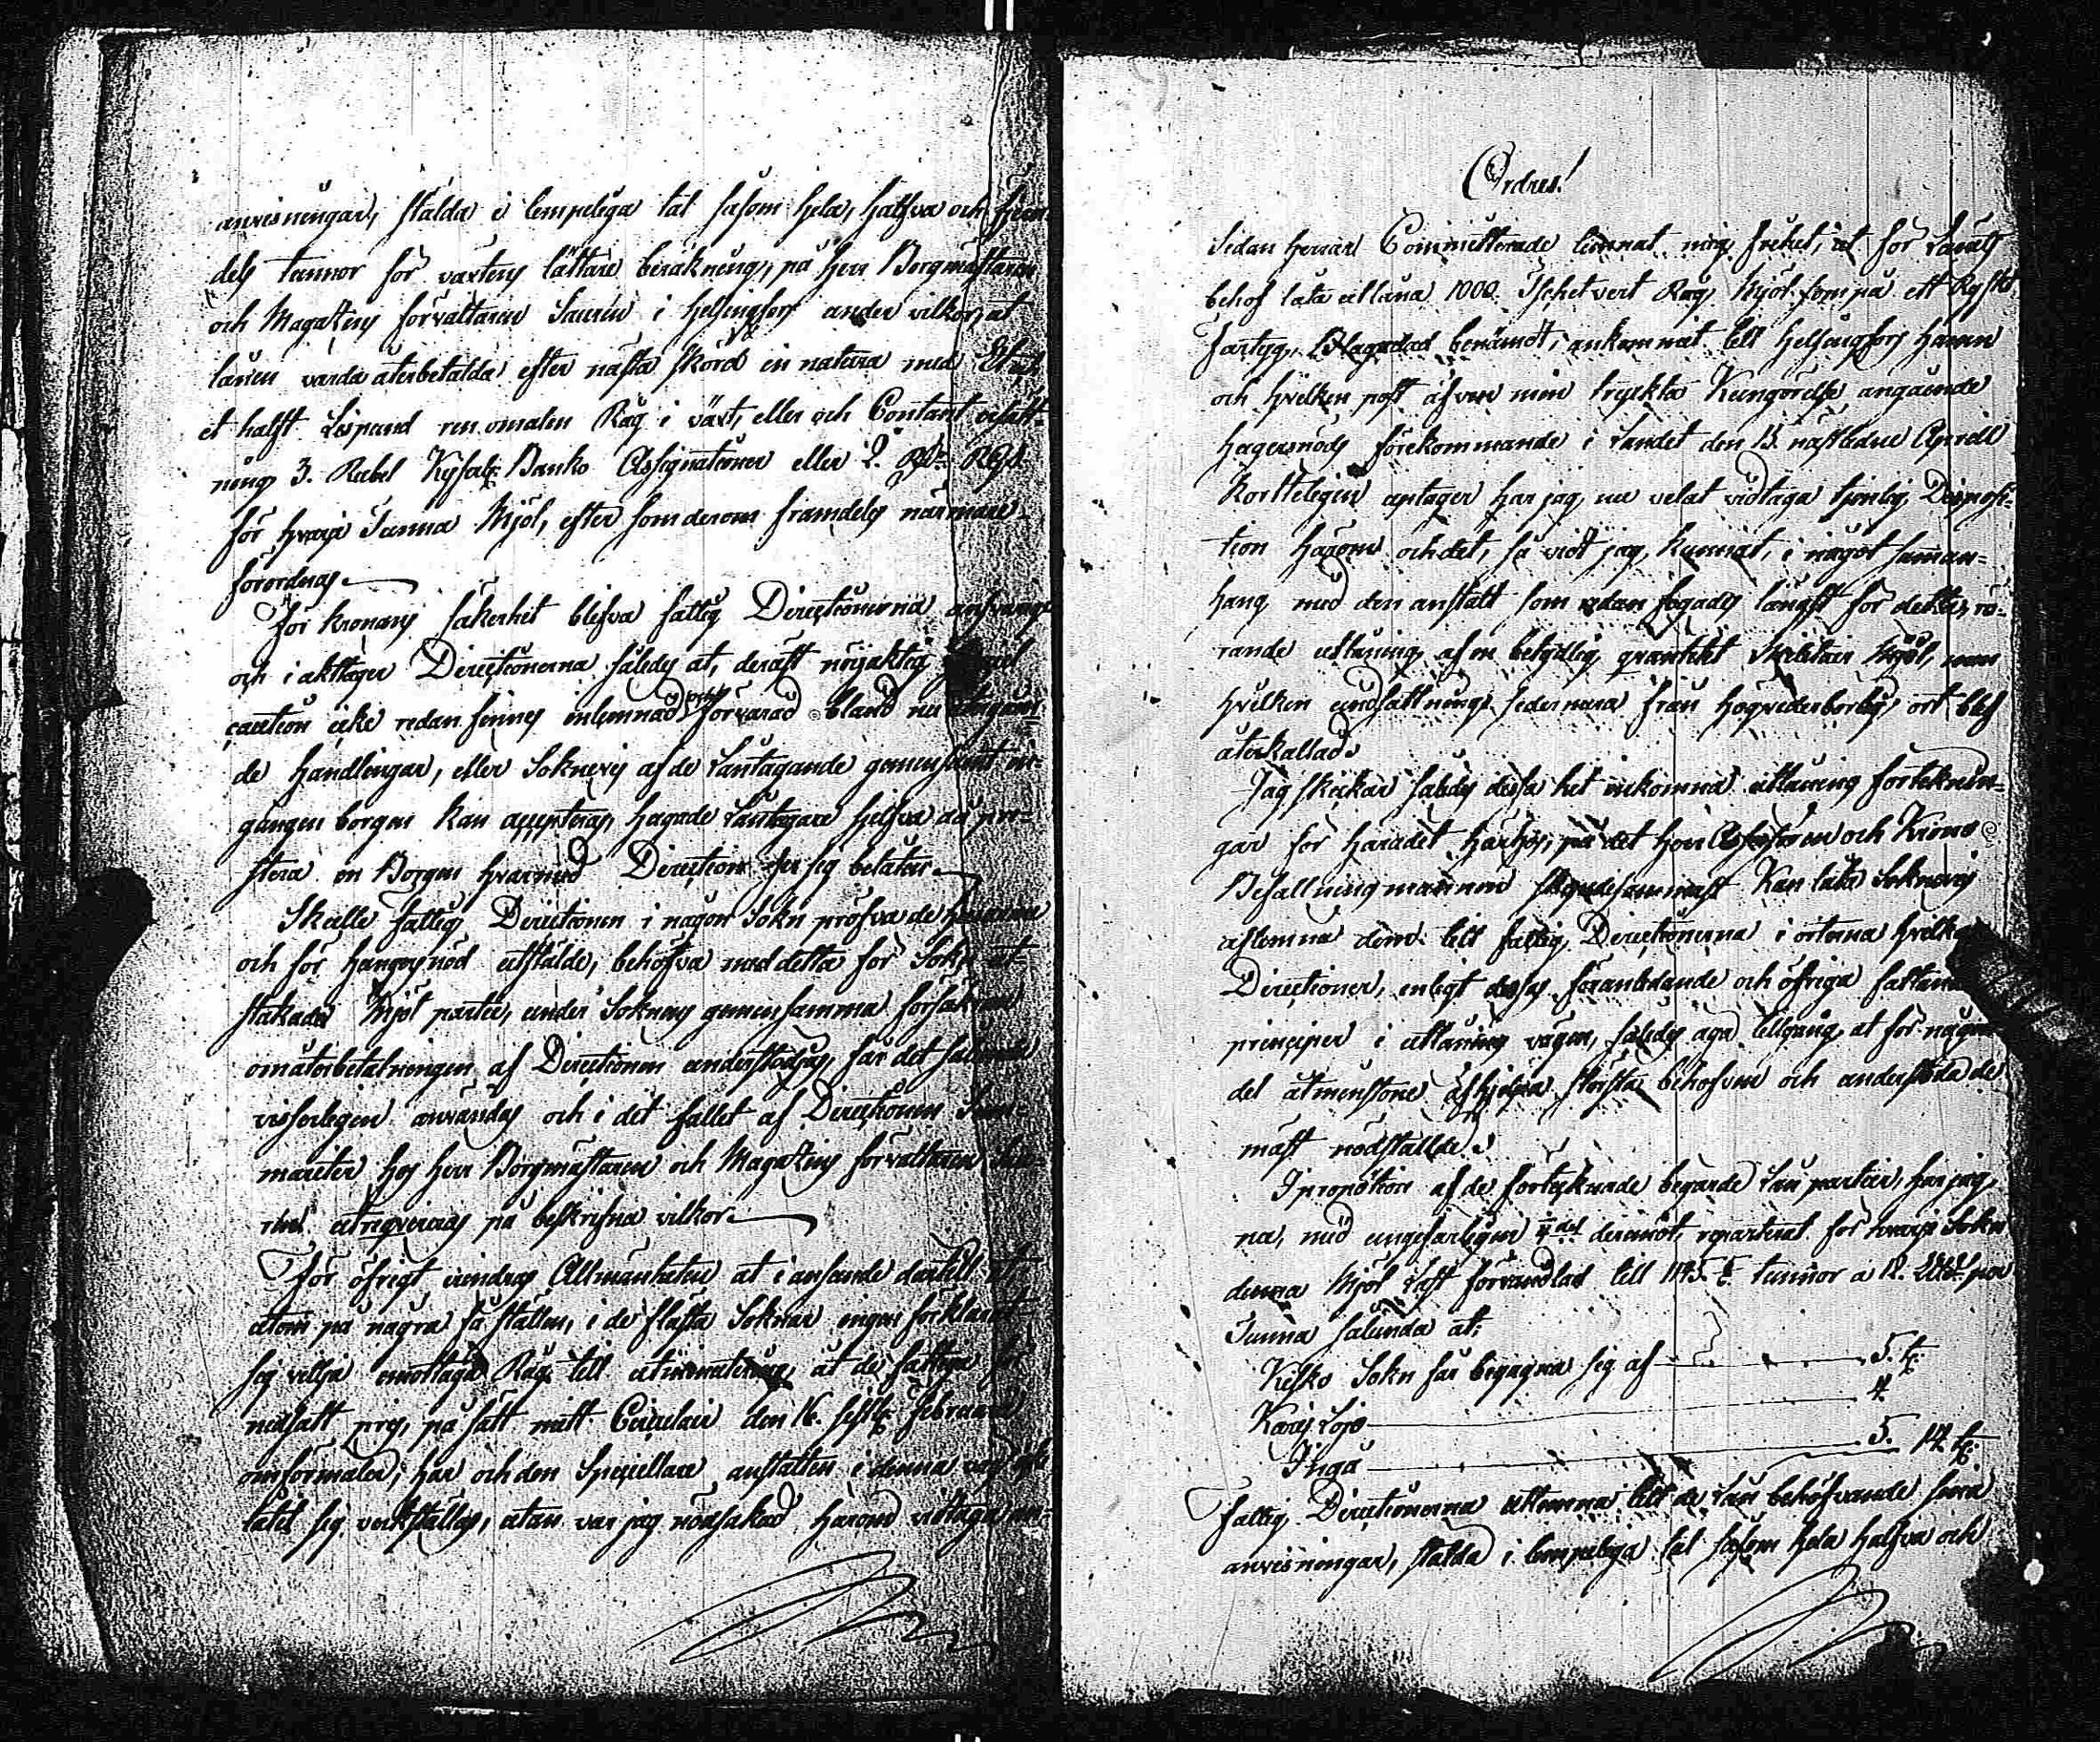 anvisningar, stälda i lempeliga tal såsom hela, halfva och fjer
dels tunnor för växtens lättare beräkning, på Herr Borgmästaren
och Magazins förvaltaren Saurén i Helsingfors under vilkor, at
lånen varda återbetalda efter nästa skörd in natura med
et halft Lispund ren omalen Råg i växt, eller och Contant ersätt-
ning 3. Rubel Banko Assignationer eller 2. Rdr Rgs
för hvarje Tunna Mjöl, efter som derom framdeles närmare
förordnas.
För Kronans säkerhet blifva fattig Directionerna
och i akttager Directionerna således at, derest nöjaktig
caution icke redan finnes inlemnad och förvarad bland nu
de Handlingar, eller Soknevis af de Låntagande gemensamt in-
gången borgen kan accepteras, hugade Låntagare sjelfva då pre-
stera en Borgen hvarmed Direction ser sig belåten.
Skulle fattig Directionen i någon Sokn pröfva de
och för hungersnöd utstälde, behöfva med detta för Sokn ut
stakade Mjöl partie, under Soknens gemensamma försäkran
om återbetalningen af Directionen understödjas, får det
visserligen användas och i det fallet af Directionen
hos Herr Borgmästaren och Magazins förvaltaren
utreqvireras på beskrifna vilkor.
För öfrigt erindras Allmänheten at i anseende dertill at
utom på några få ställen, i de flästa Soknar ingen förklarat
sig vilja emottaga Råg till utminutering, åt de fattige
nedsatt pris, på sätt mitt Circulair den 16. sistl. Februarii
omförmäler, har och den Speciellare anstalten i denna väg
låtit sig verkställas, utan var jag nödsakad härom vidtaga an-
Ordres!
Sedan Herrar Committerade lemnat mig frihet, at för Länets
behof låta utlåna 1000. Tschetvert Råg Mjöl som på ett Ryskt
Fartyg, benämdt, ankommit till Helsingfors Hamn
och hvilken post äfven min tryckta Kungörelse angående
hungersnöds förekommande i Landet den 13. nästledne Aprill
korteligen uptager har jag nu velat vidtaga tjenlig Disposi-
tion härom och det, så vidt jag kunnat, i något samman-
hang med den anstalt som redan fogades längst för detta, rö-
rande utlåning af en betydlig quantitet Militair Mjöl, men
hvilken undsättning sedermera från högvederbörlig ort blef
återkallad.
Jag skickar således dessa hit inkomna utlåning förteknin-
gar för häradet härhos, på det Herr Assessoren och Krono
Befallningsmannen skyndesammast kan låta Soknevis
aflemna dem till fattig Directionerna i orterna hvilka
Directioner, enligt dessas föranledande och öfriga
principer i utlåning vägen, således äga tillgång at för någon
del åtminstone afhjelpa största behofven och understöda de
mäst nödstälde.
I proportion af de förteknade begärde Lån partier, har jag
nu, med ungefärligen del deremot, reparterat för hvarje Sokn
denna Mjöl last förvandlad till tunnor a 18. per
Tunna sålunda at:
Kisko Sokn får begagna sig af 5. t:
Karis Lojo 4
Ingå 5. 14. t:
Fattig Directionerna utlemna till de Lån behöfvande sina
anvisningar, stälda i lempeliga tal såsom hela halfva och